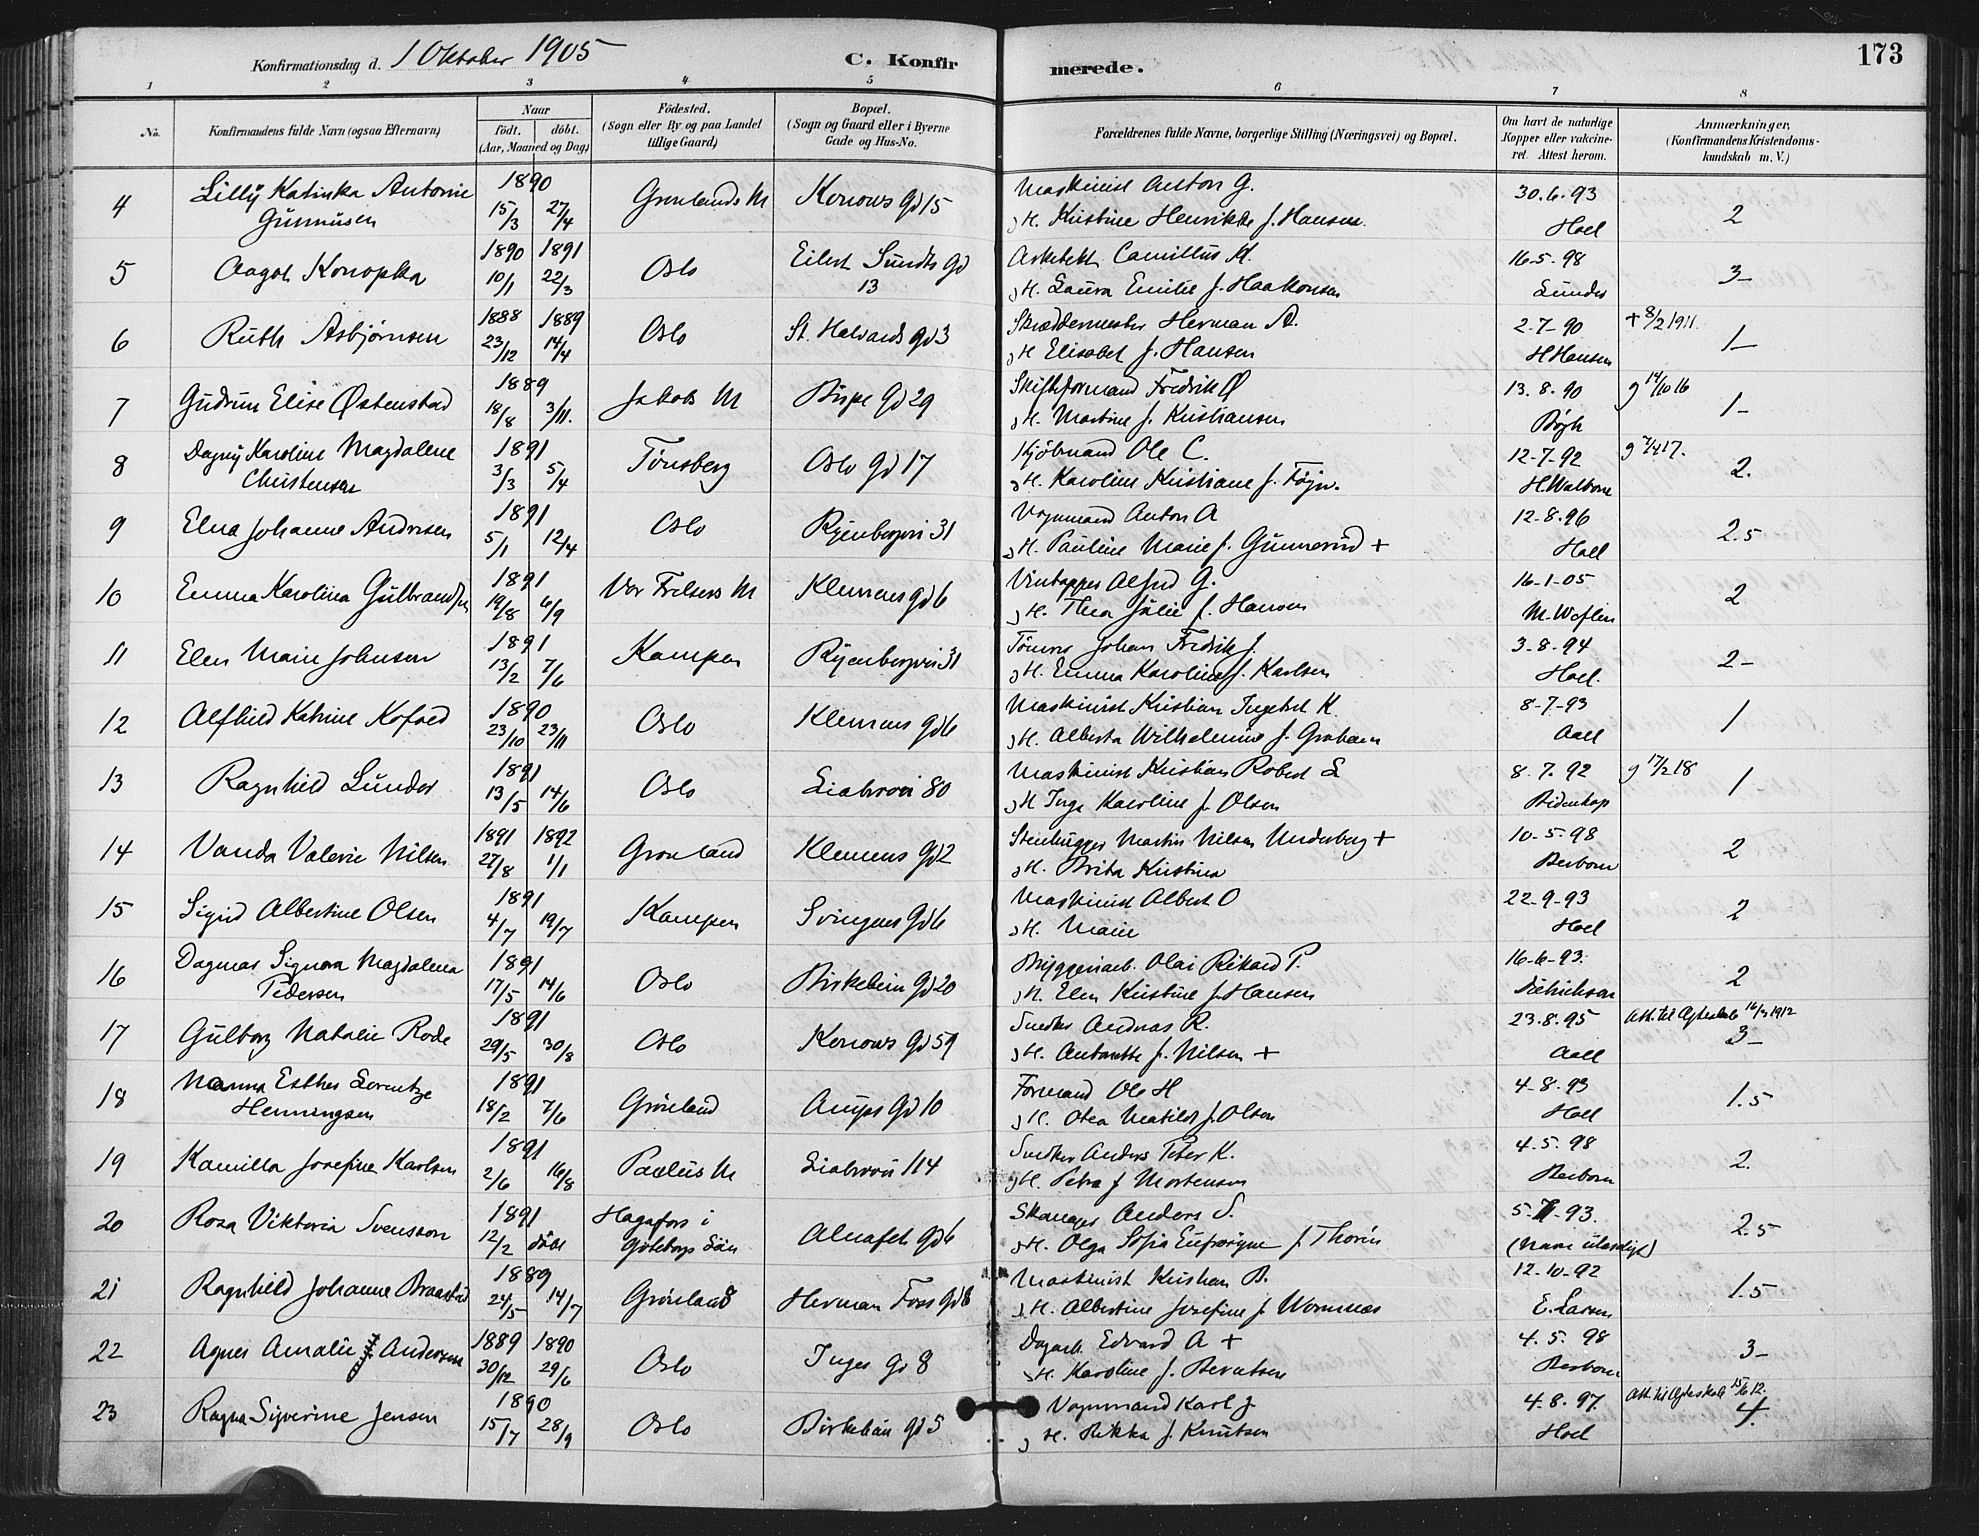 Konfirmationsdag d. 1 Oktober 1905 C. Konfirmerede. 173
1 2 3 4 5 6 7 8
No. Konfirmandens fulde Navn (ogsaa Efternavn) Naar Födested. Bopæl. Forældrenes fulde Navne, borgerlige Stilling (Næringsvei) og Bopæl. Om havt de naturlige Anmærkninger.
födt. döbt. (Sogn eller By og paa Landet (Sogn og Gaard eller i Byerne Kopper eller vakcine- (Konfirmandens Kristendoms-
(Aar, Maaned og Dag) tillige Gaard) Gade og Hus-No. ret. Attest herom. kundskab m. V.)
4 Lilly Katinka Antonie 1890 Grønlands M Konows Gd 15 Maskinist Anton G. 30.6.93
Gunnusen 15/3 27/4 H. Kristine Henrikke f. Hansen. Hoel 2
5 Aagot Konopka 1890 1891 Oslo Eilert Sundts Gd Arkitekt Camillus K. 16-5-98
10/1 22/3 13 H. Laura Emilie f. Haakonsen Lunde 3-
6 Ruth Asbjørnsen 1888 1889 Oslo St. Halvards gd 3 Skræddermester Herman A. 2-7-90 + 8/2 1911.
23/12 14/4 H Elisabet f. Hansen H Hansen 1-
7 Gudrun Elise Østenstad 1889 Jakobs M Bispe Gd 29 Skifteformand Fredrik Ø 13.8.90 g 14/10 16
18/8 3/11. H. Martine f. Kristiansen Bögh 1-
8 Dagny Karoline Magdalene 1891 Tönsberg Oslo Gd 17 Kjöbmand Ole C. 12-7-92 g 7/4 17.
Christensen 3/3 5/4 H. Karoline Kristiane f. Föyn. 2.
9 Elna Johanne Andersen 1891 Oslo Ryenbergvei 31 Vognmand Anton A 12-8-96
5/1 12/4 H. Pauline Marie f. Gunnerud + Hoel 2.5
10 Emma Karolina Gulbrandsen 1891 Vor Frelsers M Klemens gd 6 Vintapper Alfred G. 16-1-05
19/8 6/9 H. Thea Julie f. Hansen 2
11 Elen Marie Johnsen 1891 Kampen Ryenbergvei 31 Tömrer Johan Fredrik J. 3-8-94
13/2 7/6 H. Emma Karoline f. Karlsen Hoel. 2-
12 Alfhild Katrine Kofoed 1890 Oslo Klemens gd 6 Maskinist Kristian Ingebret K. 8-7-93
23/10 23/11 H. Alberta Wilhelmine f. Graham Aall 1
13 Ragnhild Lunder 1891 Oslo Liabroveien 80 Maskinist Kristian Robert L 8.7.92 g 17/2 18
13/5 14/6 H Inga Karoline f. Olsen Bidenkap 1
14 Vanda Valerie Nilsen 1891 1892 Grönland Klemens Gd 2 Stenhugger Martin Nilsen Underberg + 10-5-98
27/8 1/1 H. Brita Kristina Berbom 2
15 Sigrid Albertine Olsen 1891 Kampen Svingens Gd 6 Maskinist Albert O 22-9-93
4/7 19/7 H. Marie Hoel 2
16 Dagmar Signora Magdalena 1891 Oslo Birkebein Gd 20 Bryggeriarb. Olai Rikard P. 16-6-93.
Pedersen 17/5 14/6 H. Elen Kristine f. Hansen Dietrichson 2
17 Gulborg Natalie Rode 1891 Oslo Konows Gd 59 Snedker Andreas R. 23.8.95 Att. til Ægteskab 16/3 1912
29/5 30/8 H. Antonette f. Nilsen + Aall 3-
18 Nanna Esther Lorentze 1891 Grönland Ampes Gd 10 Formand Ole H 4-8-93
Henningsen 18/2 7/6 H. Otea Matilde f. Olsen Hoel 1.5
19 Kamilla Josefine Karlsen 1891 Paulus M Liabroveien 114 Snedker Anders Peter K. 4.5.98
2/6 16/8 H. Petra f Mortensen Berbom 2.
20 Rosa Viktoria Svensson 1891 Hagafors i Alnafet Gd 6 Anders S. 5-7-93.
12/2 döbt Göteborgs Län H. Olga Sofia Eufrosyne f. Thorin (Navn ulæseligt) 2.5
21 Ragnhild Johanne Braastad 1889 Grönland Herman Foss Gd 8 Maskinist Kristian B. 12-10-92
24/5 14/7 H. Albertine Josefine f. Wormnæs E. Larsen 1.5
22 Agnes Amalie Andersen 1889 1890 Oslo Inges Gd 8 Dagarb. Edvard A + 4.5.98
30/12 29/6 H. Karoline f. Berntsen Berbom 3-
23 Ragna Siverine Jensen 1890 Oslo Birkebein Gd 5 Vognmand Karl J. 4.8.97. Att. til Ægteskab 15/6 12.
15/7 28/9 H. Rikka f. Knutsen Hoel 4.